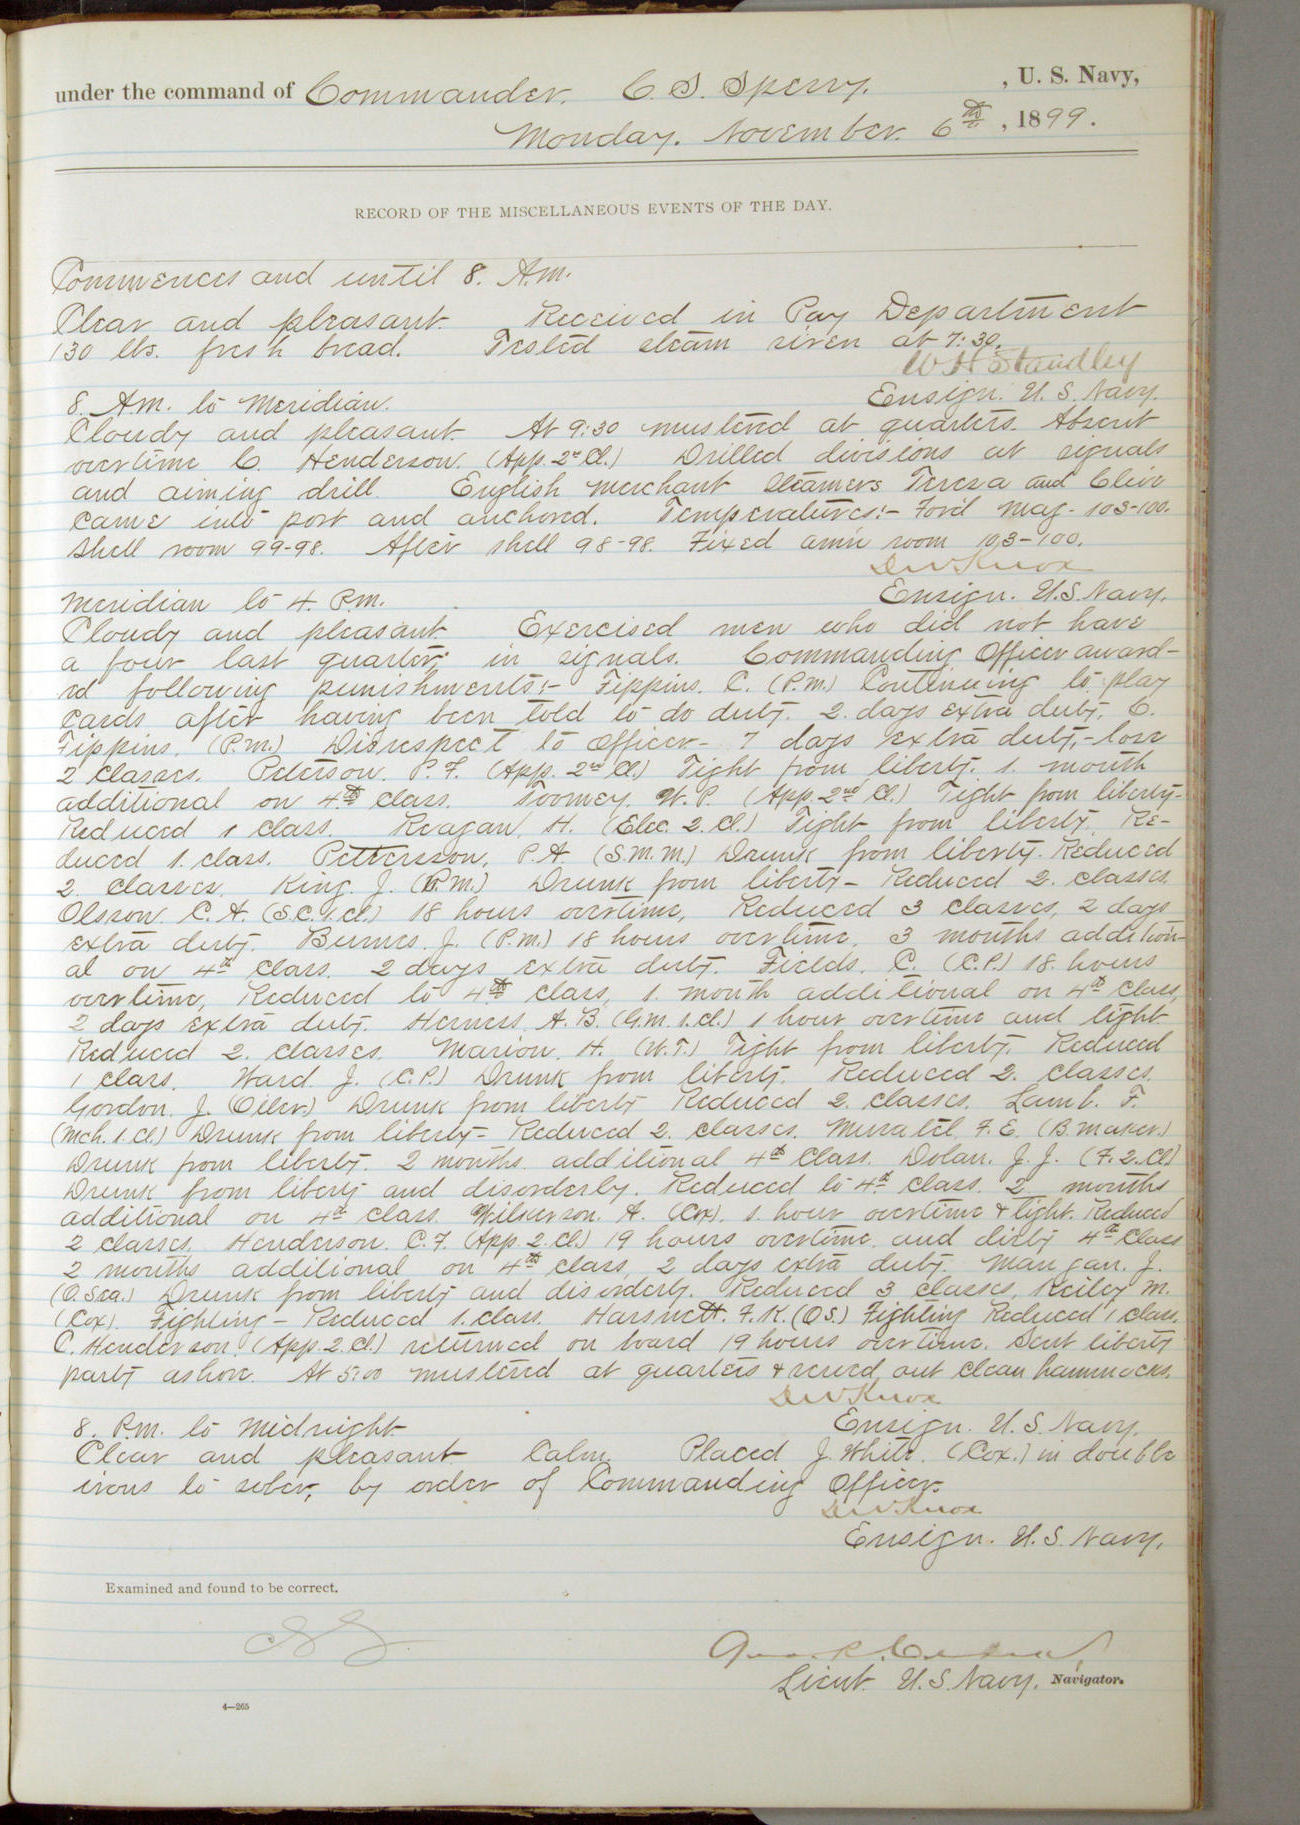 under the command of Commander. C. S. Sperry. , U. S. Navy,
Monday. November. 6th , 1899.
RECORD OF THE MISCELLANEOUS EVENTS OF THE DAY.
Commences and until 8. A.m.
Clear and pleasant. Received in Pay Department
130 lbs. fresh bread. Tested steam siren at 7:30.
W H Standley
Ensign. U. S. Navy.
8. A.m. to Meridian.
Cloudy and pleasant. At 9:30 mustered at quarters. Absent
overtime C. Henderson. (App. 2nd Cl.) Drilled divisions at signals
and aiming drill. English merchant steamers Teresa and Clive
came into port and anchored. Temperatures:- For'd mag- 103-100.
Shell room 99-98. After shell 98-98. Fixed am'n room 103-100.
D W Knox
Ensign. U. S. Navy.
Meridian to 4. P.m.
Cloudy and pleasant. Exercised men who did not have
a four last quarter, in signals. Commanding Officer award-
ed following punishments:- Tippins. C. (P.m.) Continuing to play
cards after having been told to do duty. 2. days extra duty. C.
Tippins. (P.m.) Disrespect to Officer- 7 days extra duty,-lose
2 classes. Peterson. P. F. (App. 2nd Cl.) Tight from liberty. 1. month
additional on 4th class. Toomey. W. P. (App. 2nd Cl.) Tight from liberty-
Reduced 1 class. Reagan, H. (Elec. 2. Cl.) Tight from liberty. Re-
duced 1. class. Pettersson, P. A. (S.M.M.) Drunk from liberty. Reduced
2. classes. King. J. (P.m.) Drunk from liberty- Reduced 2. classes.
Olsson. C. A. (S.C. 1. cl.) 18 hours overtime, Reduced 3 classes, 2 days
extra duty. Burnes. J. (P.m.) 18 hours overtime, 3 months addition-
al on 4th class. 2 days extra duty. Fields. C. (C.P.) 18. hours
overtime, Reduced to 4th class, 1. month additional on 4th class,
2 days extra duty. Herness. A. B. (G.m. 1. cl.) 1 hour overtime and tight.
Reduced 2. classes. Marion. H. (W.T.) Tight from liberty. Reduced
1 class. Ward. J. (C.P.) Drunk from liberty. Reduced 2. classes.
Gordon. J. (Oiler.) Drunk from liberty Reduced 2. classes. Lamb. F.
(Mch. 1. cl.) Drunk from liberty- Reduced 2. classes. F. E. (B. maker.)
Drunk from liberty. 2 months. additional 4th class. Dolan. J. J. (F. 2. Cl)
Drunk from liberty and disorderly. Reduced to 4th class. 2 months
additional on 4th class. Wilkerson. A. (Cox). 1. hour overtime & tight. Reduced
2 classes. Henderson. C. F. (App. 2. cl.) 19 hours overtime. and dirty 4th class
2 months additional on 4th class, 2 days extra duty. Mangan. J.
(O. Sea.) Drunk from liberty and disorderly. Reduced 3 classes. Reiley M.
(Cox). Fighting- Reduced 1. class. Harsnett. F. K. (O S.) Fighting Reduced 1 class.
C. Henderson. (App. 2. cl.) returned on board 19 hours overtime. Sent liberty
party ashore. At 5:00 mustered at quarters & served out clean hammocks.
D W Knox
Ensign. U. S. Navy.
8. P.m. to Midnight
Clear and pleasant. Calm. Placed J. White. (Cox.) in double
irons to sober, by order of Commanding Officer.
D W Knox
Ensign. U. S. Navy.
Examined and found to be correct.
Lieut. U. S. Navy, Navigator.
4—265